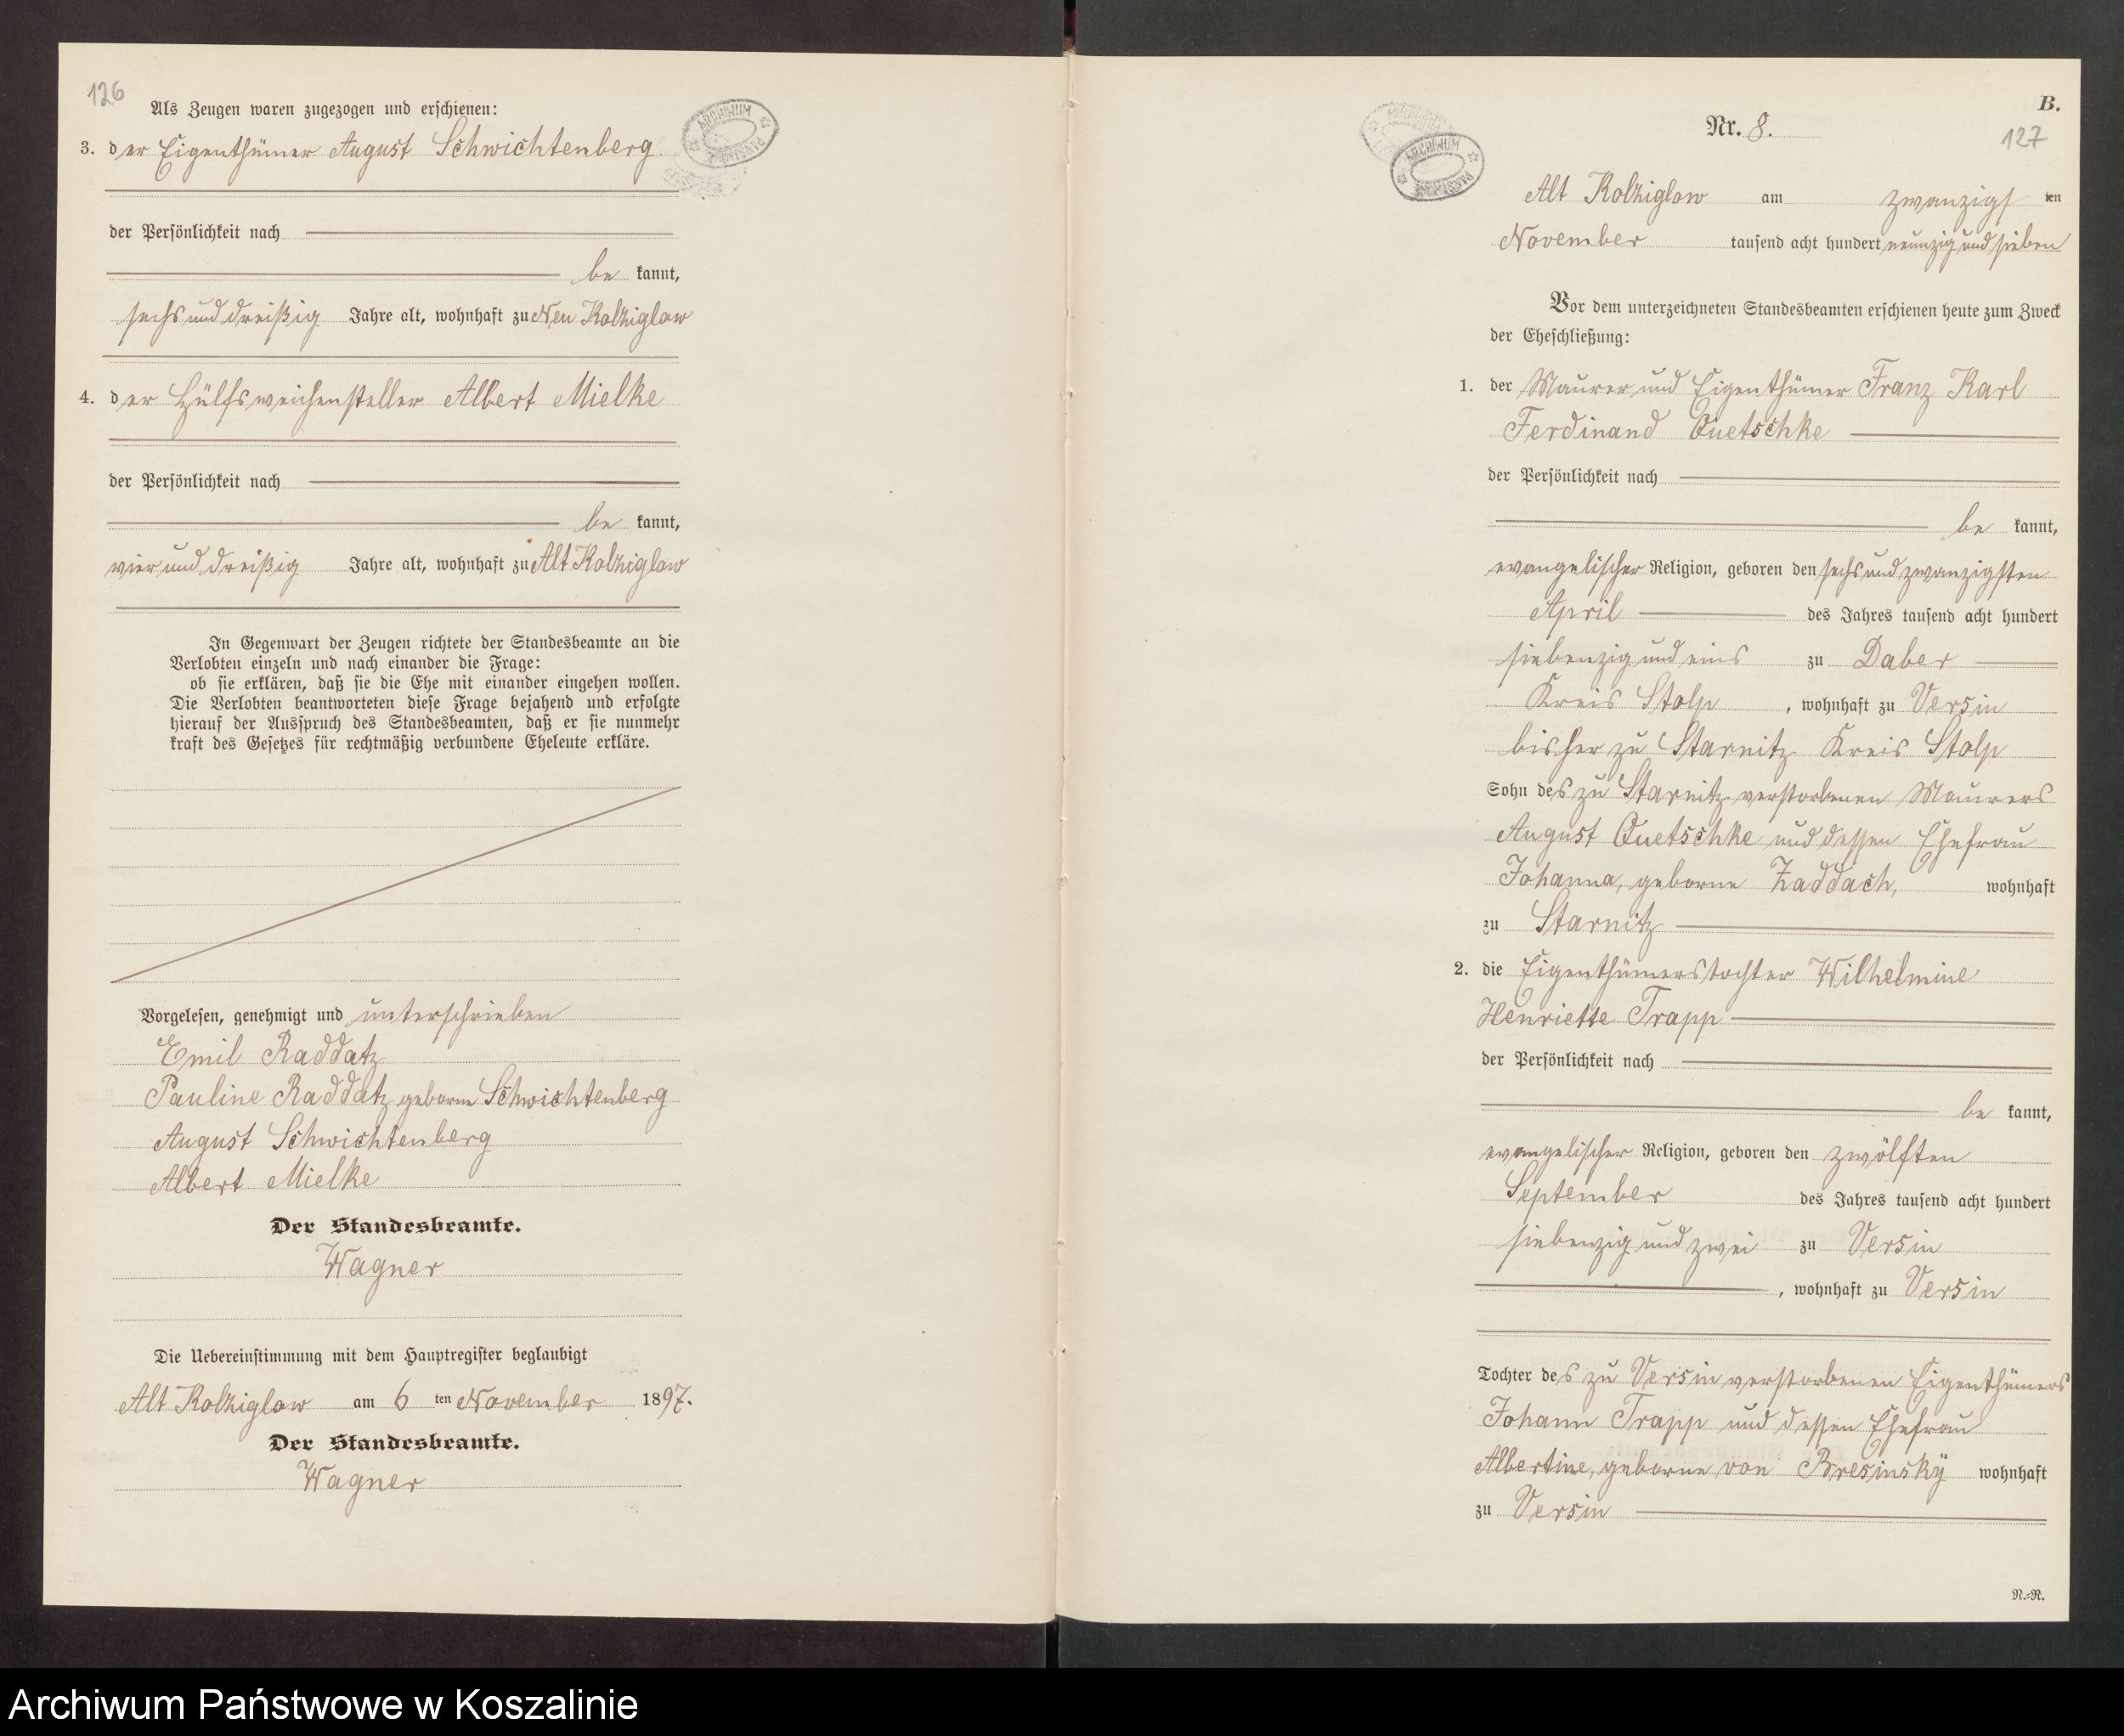 126
Als Zeugen waren zugezogen und erschienen:
3. der Eigenthümer August Schwichtenberg
der Persönlichkeit nach
be kannt,
sechs und dreißig Jahre alt, wohnhaft zu Neu Kolziglow
4. der Hülfsweichensteller Albert Mielke
der Persönlichkeit nach
be kannt,
vier und dreißig Jahre alt, wohnhaft zu Alt Kolziglow
In Gegenwart der Zeugen richtete der Standesbeamte an die
Verlobten einzeln und nach einander die Frage:
ob sie erklären, daß sie die Ehe mit einander eingehen wollen.
Die Verlobten beantworteten diese Frage bejahend und erfolgte
hierauf der Ausspruch des Standesbeamten, daß er sie nunmehr
kraft des Gesetzes für rechtmäßig verbundene Eheleute erkläre.
Vorgelesen, genehmigt und unterschrieben
Emil Raddatz
Pauline Raddatz geborne Schwichtenberg
August Schwichtenberg
Albert Mielke
Der Standesbeamte.
Wagner
Die Uebereinstimmung mit dem Hauptregister beglaubigt
Alt Kolziglow am 6 ten November 1897.
Der Standesbeamte.
Wagner
ARCHIWUM PAŃSTWOWE
B.
Nr. 8.
127
ARCHIWUM PAŃSTWOWE
Alt Kolziglow am zwanzigsten
November tausend acht hundert neunzig und sieben
Vor dem unterzeichneten Standesbeamten erschienen heute zum Zweck
der Eheschließung:
1. der Maurer und Eigenthümer Franz Karl
Ferdinand Quetschke
der Persönlichkeit nach
be kannt,
evangelischer Religion, geboren den sechs und zwanzigsten
April des Jahres tausend acht hundert
siebenzig und eins zu Daber
Kreis Stolp, wohnhaft zu Versin
bisher zu Starnitz Kreis Stolp
Sohn des zu Starnitz verstorbenen Maurers
August Quetschke und dessen Ehefrau
Johanna, geborne Zaddach, wohnhaft
zu Starnitz
2. die Eigenthümerstochter Wilhelmine
Henriette Trapp
der Persönlichkeit nach
be kannt,
evangelischer Religion, geboren den zwölften
September des Jahres tausend acht hundert
siebenzig und zwei zu Versin
, wohnhaft zu Versin
Tochter des zu Versin verstorbenen Eigenthümers
Johann Trapp und dessen Ehefrau
Albertine, geborne von Bresinsky wohnhaft
zu Versin
N.-R.
Archiwum Państwowe w Koszalinie